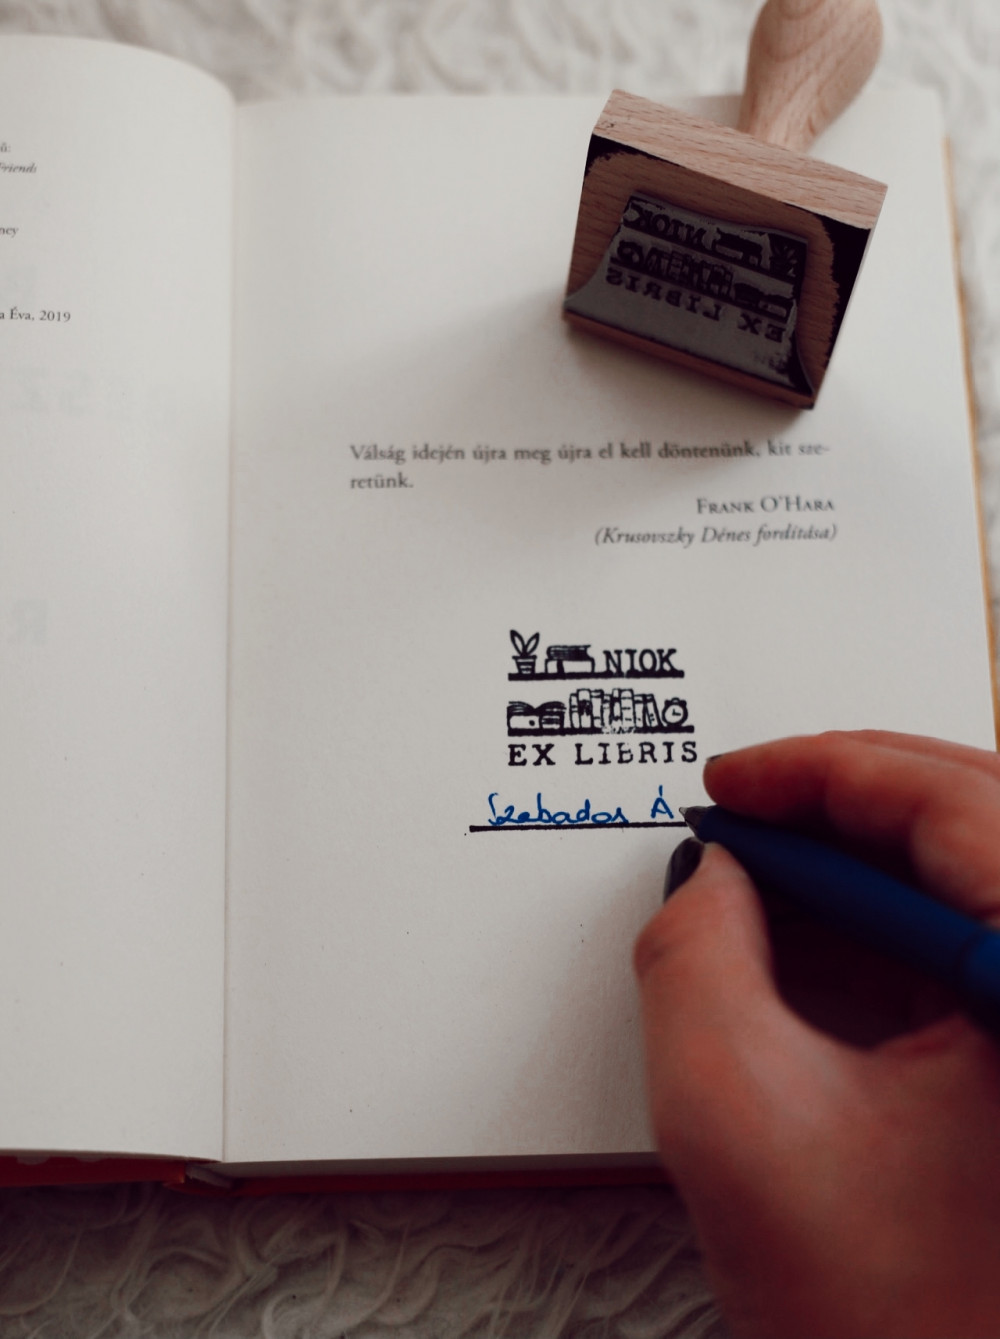 Friends
a Éva, 2019
Válság idején újra meg újra el kell döntenünk, kit sze-
retünk.
FRANK O'HARA
(Krusovszky Dénes fordítása)
NIOK
EX LIBRIS
Szabados Á
NIOK
EX LIBRIS